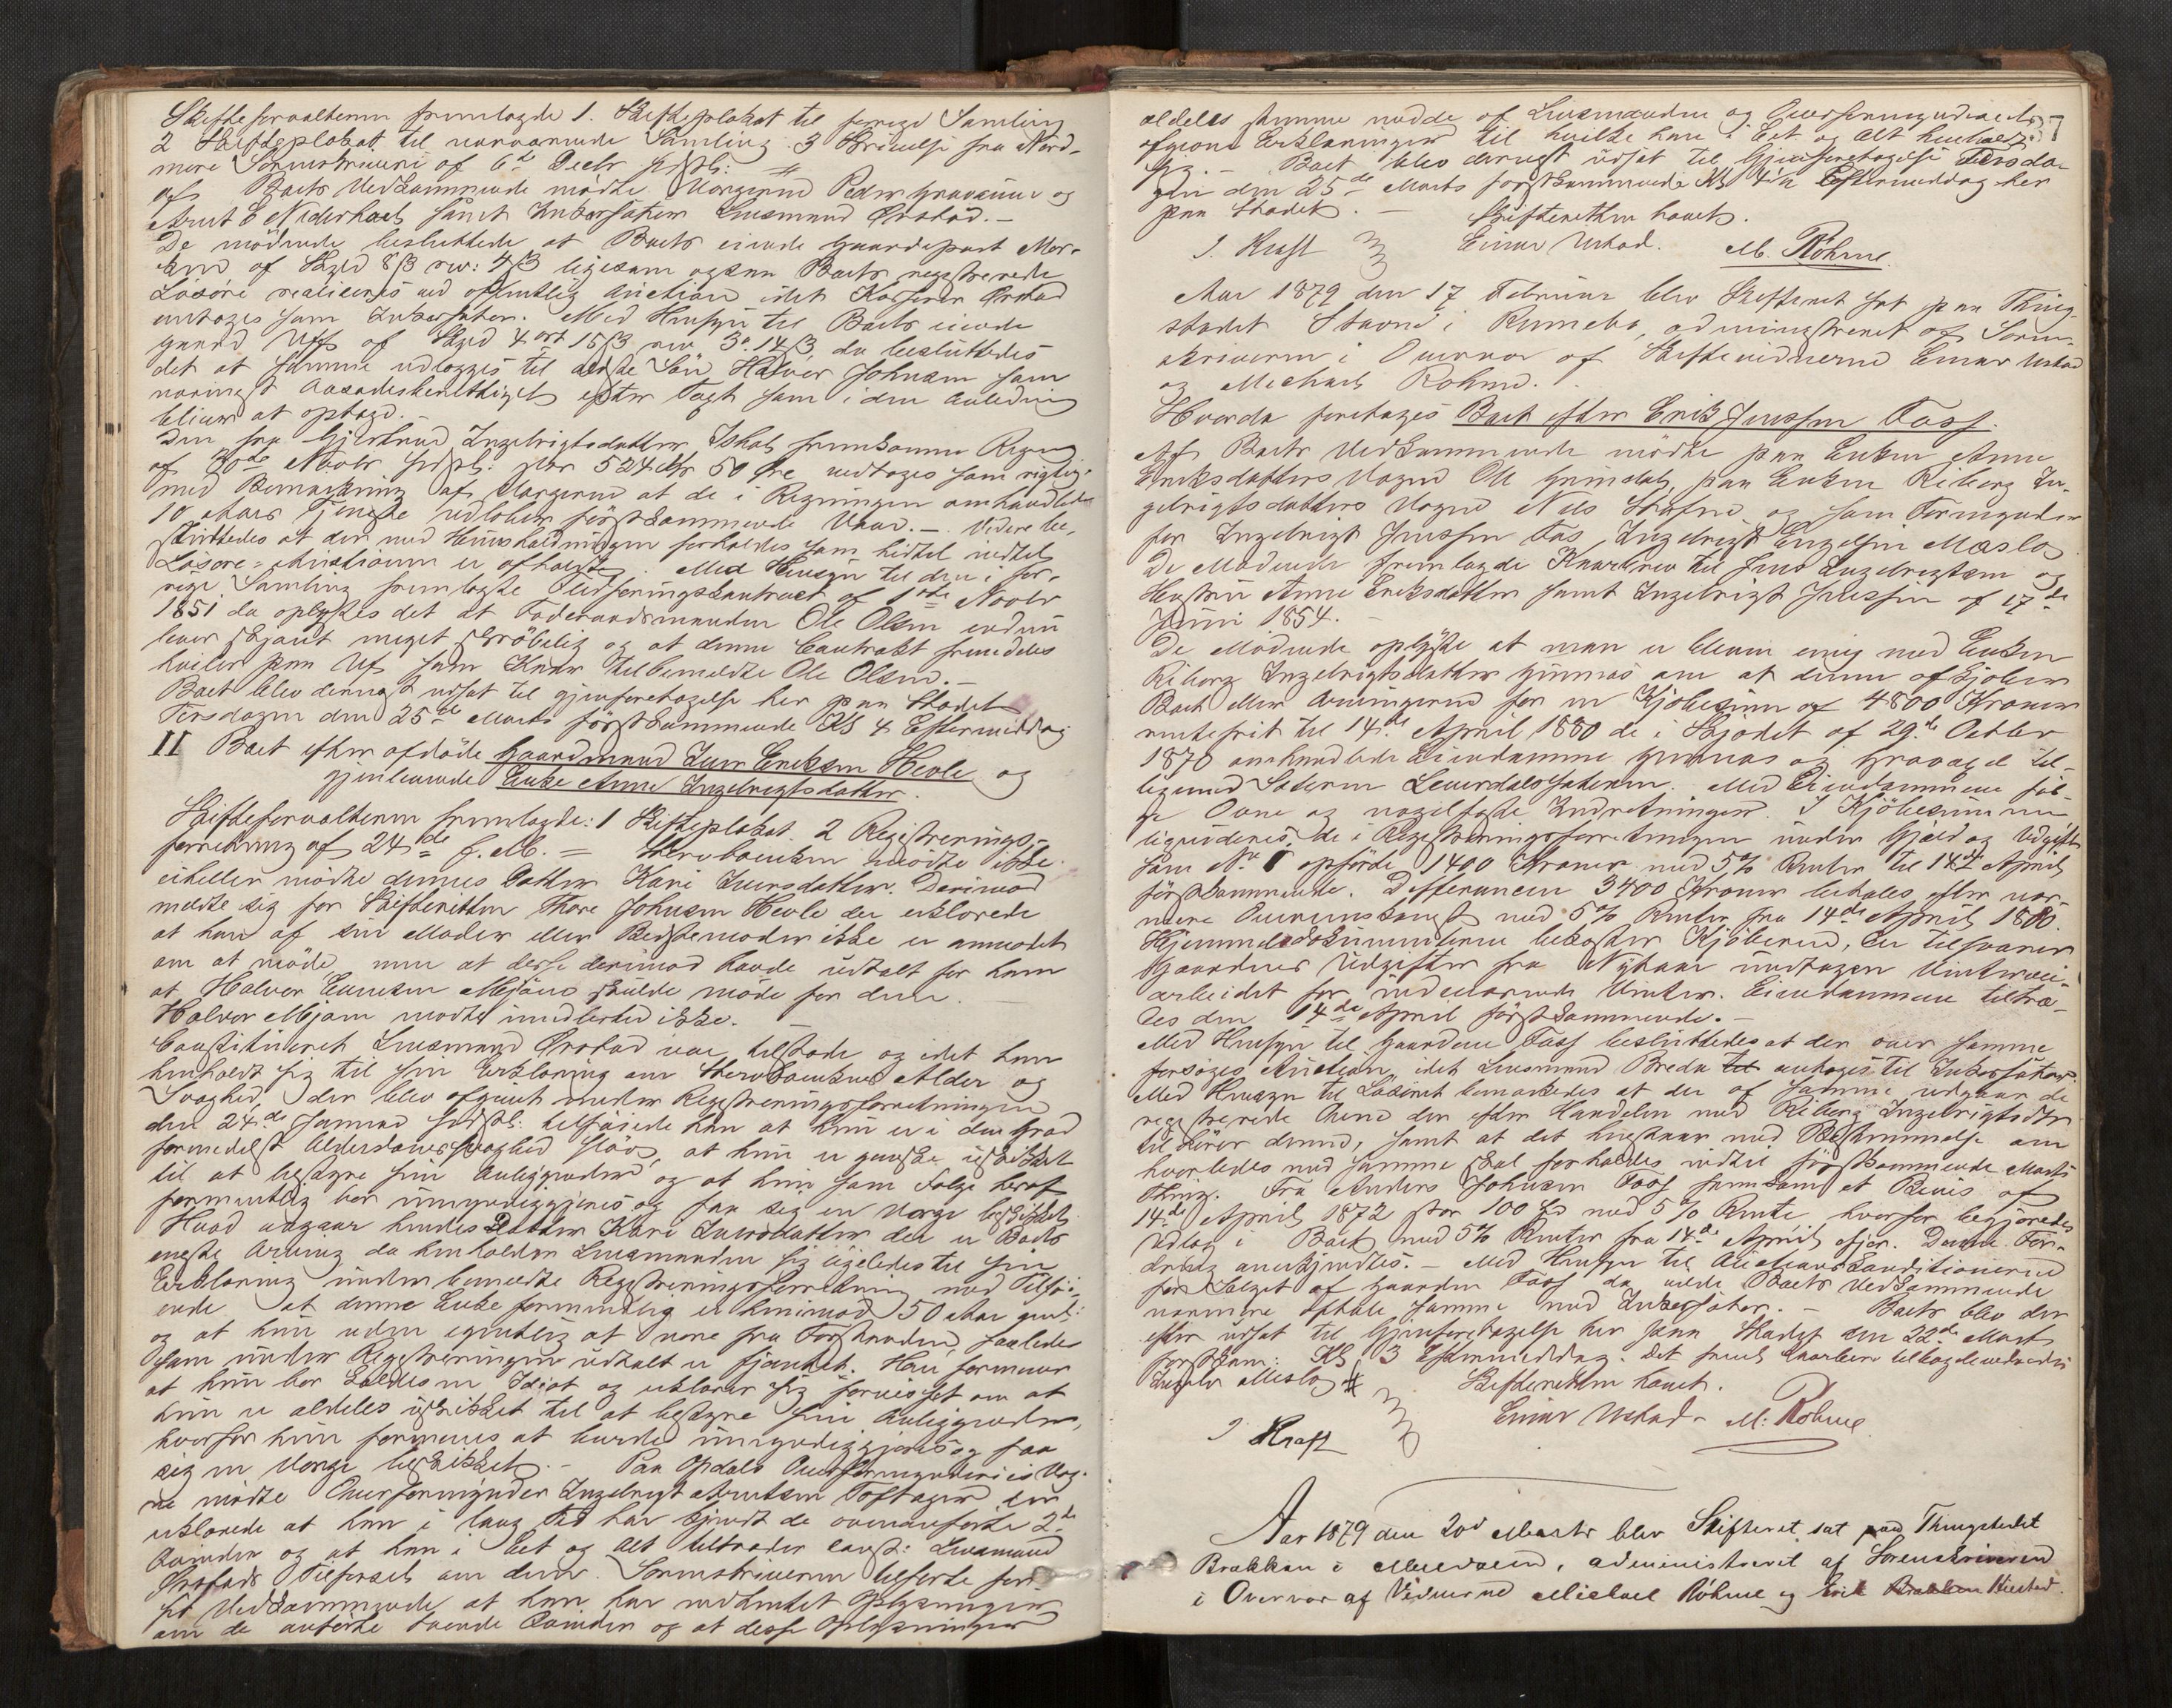 Skifteforvalteren fremlagde 1. Skifteplakat til forrige Samling
2 Skifteplakat til nærværende Samling 3 Skrivelse fra Nord-
møre Sorenskriveri af 6te Decbr
af Boets Vedkommende mødte Værgerne Peder Gravaune og
Arnt E Nederhoel samt Inkassator Lensmand Ørstad.-
De mødende besluttede at Boets eiende Gaardepart
af Skyld ligesom ogsaa Boets registrerede
Løsøre realiseres ved offentlig Auction idet Kasserer Ørstad
antages som Inkassator. Med Hensyn til Boets eiende
gaard Uff af Skyld 4 ort 15 ß da besluttedes
det at samme udlægges til ældste Søn Halvor Johnsen som
nærmest Aasædesberettiget efter Taxt som i den Anledning
bliver at optage.-
Den fra Gjertrud Ingebrigtsdatter fremkomne Regning
af 30de Novbr stor 524 Kr 60 Øre vedtoges som rigtig
med Bemærkning af Værgerne at de i Regningen omhandlede
10 Aars Tjeneste udløber førstkommende Vaar.- Videre be-
sluttedes at der med Huusholdningen forholdes som hidtil indtil
Løsøre-Auctionen er afholdt. Med Hensyn til den i for-
rige Samling fremlagte Fledføringskontract af 1ste Novbr
1851 da oplystes det at Føderaadsmanden Ole Olsen endnu
lever skjønt meget skrøbelig og at denne Contrakt fremdeles
hviler paa Uf som til bemeldte Ole Olsen.-
Boet blev dernæst udsat til gjenforetagelse her paa Stedet
Tirsdagen den 25de Marts førstkommende Kl 4 Eftermiddag
II Boet efter afdøde Gaardmand Iver Eriksen Hevle og
gjenlevende Enke Anne Ingebrigtsdatter.
Skifteforvalteren fremlagde: 1 Skifteplakat. 2 Registrerings-
forretning af 24de f. M. = Stervboenken mødte ikke
eiheller mødte dennes Datter Kari Iversdatter. Derimod
meldte sig for Skifteretten Thore Johnsen Hevle der erklærede
at han af sin Moder eller Bedstemoder ikke er anmodet
om at møde, men at disse derimod havde udtalt for ham
at Halvor Mjøen skulde møde for dem.
Halvor Mjøen mødte imidlertid ikke.
Constitueret Lensmand Ørstad var tilstede og idet han
henholdt sig til sin Erklæring om Stervboenkens Alder og
Svaghed, der blev afgivet under Registreringsforretningen
den 24de Januar sidstl: tilføiede han at hun er i den Grad
formedelst Alderdomssvaghed sløv, at hun er ganske uskikket
til at bestyre sine Anliggender og at hun som Følge heraf
formentlig bør umyndiggjøres og faa sig en Værge beskikket.
Hvad angaar hendes Datter Kari Iversdatter der er Boets
eneste Arving da henholder Lensmanden sig ligeledes til sin
Erklæring under bemeldte Registreringsforretning med Tilføi-
ende at denne Enke formentlig er henimod 50 Aar gml:
og at hun uden egentlig at være fra Forstanden, saaledes
som under Registreringen udtalt er fjantet. Han formener
at hun bør kaldes en Idiot og erklærer sig forvisset om at
hun er aldeles uskikket til at bestyre sine Anliggender,
hvorfor hun formenes at burde umyndiggjøres og faa
sig en Værge beskikket.- Paa Opdals Overformynderies Veg-
ne mødte Overformynder Ingebrigt Arntsen Toftager der
erklærede at han i lang Tid har kjendt de ovenanførte 2de
Qvinder og at han i Eet og Alt tiltræder const: Lensmand
Ørstads Tilførsel om dem. Sorenskriveren tilførte for
sit Vedkommende at han har indhentet Oplysninger
om de anførte tvende Qvinder og at disse Oplysninger
aldeles stemme med de af Lensmanden og Overformynderiet
afgivne Erklæringer til hvilke han i Eet og Alt henholdt
sig.- Boet blev dernæst udsat til Gjenforetagelse Tirsda-
gen den 25de Marts førstkommende Kl 4½ Eftermiddag her
paa Stedet.- Skifteretten hævet.
J. Kraft Einar Ustad. M. Röhme.
Aar 1879 den 17 Februar blev Skifteret sat paa Thing-
stedet Stavne i Rennebo, administreret af Soren-
skriveren i Overvær af Skiftevidnerne Einar Ustad
og Michael Röhme.
Hvorda foretages Boet efter Erik Jensen Foss.
Af Boets Vedkommende mødte paa Enken Anne
Eriksdatters Vegne Ole Grindal, paa Enken Riborg In-
gebrigtsdatters Vegne Nils og som Formynder
for Ingebrigt Jensen Fos, Ingebrigt Engelsen Meslo
De Mødende fremlagde til Jens Ingebrigtsen og
Hustru Anne Eriksdatter samt Ingebrigt Jenssen af 17de
Juni 1854.-
De Mødende oplyste at man er bleven enig med Enken
Riborg Ingebrigtsdatter Gunnes om at denne afkjøber
Boet eller Arvingerne for en Kjøbesum af 4800 Kroner
rentefrit til 14de April 1880 de i Skjødet af 29de Octbr
1870 omhandlede Eiendomme Gunnes og Gravagel til-
ligemed Sæteren Leverdalssæteren. Med Eiendommene føl-
ge Ovne og nagelfaste Indretninger. I Kjøbesummen
liquideres de i Registreringsforretningen under Gjæld og Udgifter
som No 1 opførte 1400 Kroner med 5% Renter til 14de April
førstkommende. Differencen 3400 Kroner betales efter nær-
mere Overenskomst med 5% Renter fra 14de April 1880.
Hjemmelsdokumenterne bekoster Kjøberen, der tilsvarer
Gaardenes Udgifter fra Nytaar undtagen Vintervei-
arbeidet for indeværende Vinter. Eiendommene tiltræ-
des den 14de April førstkommende.-
Med Hensyn til Gaarden Foss besluttedes at der over samme
forsøges Auction, idet Lensmand Bredn antages til Inkassator.
Med Hensyn til Løsøret bemærkedes at der af samme udgaar de
registrerede Ovne der efter Handelen med Riborg Ingebrigtsdtr
tilhører denne, samt at det henstaar med Bestemmelse om
hvorledes med samme skal forholdes indtil førstkommende Marts
Thing. Fra Anders Johnsen Foss fremkom et Bevis af
14de April 1872 stor 100 Spd med 5% Rente hvorfor begjæredes
Udlæg i Boet med 5% Renter fra 14de April ifjor. Denne For-
dring anerkjendtes.- Med Hensyn til Auctionskonditionerne
for Salget af Gaarden Foss da vilde Boets Vedkommende
nærmere aftale samme med Inkassator.- Boet blev der
efter udsat til Gjenforetagelse her paa Stedet den 22de Marts
førstkom: Kl 3 Eftermiddag. Det tilbageleveredes
Meslo Skifteretten hævet.
J Kraft Einar Ustad- M: Röhme
Aar 1879 den 20de Marts blev Skifteret sat paa Thingstedet
Brækken i Meldalen, administreret af Sorenskriveren
i Overvær af Vidnerne Michael Röhme og Erik